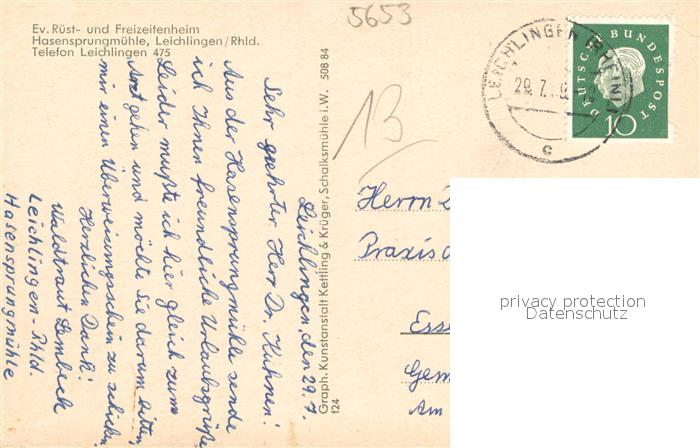 Ev. Rüst- und Freizeitenheim
Hasensprungmühle, Leichlingen/Rhld.
Telefon Leichlingen 475
5653
Leichlingen, den 29. 7.
Sehr geehrter Herr Dr. Kühnen!
Aus der Hasensprungmühle sende
ich Ihnen freundliche Urlaubsgrüße
Leider mußte ich hier gleich zum
Arzt gehen und möchte Sie darum bitten,
mir einen Überweisungsschein zu schicken.
Herzlichen Dank!
Waldtraut Lembeck
Leichlingen-Rhld.
Hasensprungmühle
Graph. Kunstanstalt Kettling & Krüger, Schalksmühle i.W. 508 84
124
13
LEICHLINGEN (RHEINL)
29.7.
c
DEUTSCHE BUNDESPOST
10
Herrn D
Praxis
Esse
Gem
Am
privacy protection
Datenschutz